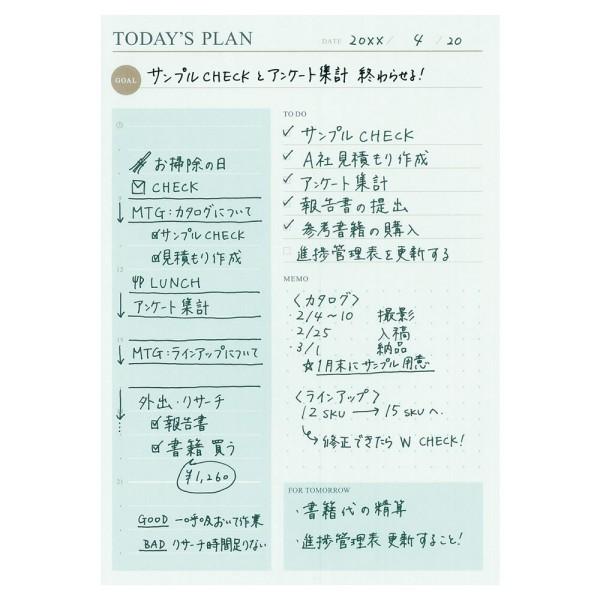 TODAY'S PLAN
DATE 20XX / 4 / 20
GOAL サンプルCHECKとアンケート集計 終わらせる!
お掃除の日
CHECK
MTG:カタログについて
サンプルCHECK
見積もり作成
12
LUNCH
アンケート集計
15
MTG:ラインアップについて
外出・リサーチ
報告書
書籍買う
¥1,260
21
GOOD 一呼吸おいて作業
BAD リサーチ時間足りない
TO DO
サンプルCHECK
A社見積もり作成
アンケート集計
報告書の提出
参考書籍の購入
進捗管理表を更新する
MEMO
〈カタログ〉
・2/4～10 撮影
・2/25 入稿
・3/1 納品
☆1月末にサンプル用意
〈ラインアップ〉
12SKU → 15SKUへ.
↳修正できたらW CHECK!
FOR TOMORROW
・書籍代の精算
・進捗管理表 更新すること!